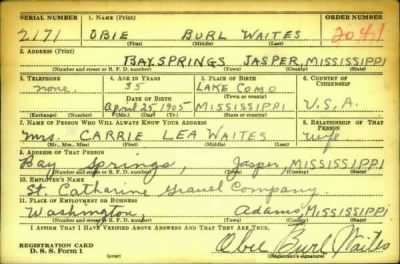 SERIAL NUMBER 1. NAME (Print) ORDER NUMBER
2171 OBIE BURL WAITES 2041
(First) (Middle) (Last)
2. ADDRESS (Print)
BAY SPRINGS JASPER, MISSISSIPPI
(Number and street or R. F. D. number) (Town) (County) (State)
3. TELEPHONE 4. AGE IN YEARS 5. PLACE OF BIRTH 6. COUNTRY OF CITIZENSHIP
none. 35 LAKE COMO
DATE OF BIRTH (Town or county)
April 25, 1905 MISSISSIPPI U.S.A.
(Exchange) (Number) (Mo.) (Day) (Yr.) (State or country)
7. NAME OF PERSON WHO WILL ALWAYS KNOW YOUR ADDRESS 8. RELATIONSHIP OF THAT PERSON
Mrs. CARRIE LEA WAITES wife
(Mr., Mrs., Miss) (First) (Middle) (Last)
9. ADDRESS OF THAT PERSON
Bay Springs, Jasper, MISSISSIPPI
(Number and street or R. F. D. number) (Town) (County) (State)
10. EMPLOYER'S NAME
St. Catharine Gravel Company
11. PLACE OF EMPLOYMENT OR BUSINESS
Washington, Adams, MISSISSIPPI
(Number and street or R. F. D. number) (Town) (County) (State)
I AFFIRM THAT I HAVE VERIFIED ABOVE ANSWERS AND THAT THEY ARE TRUE.
REGISTRATION CARD
D. S. S. Form 1 (over) Obie Burl Waites
(Registrant's signature)